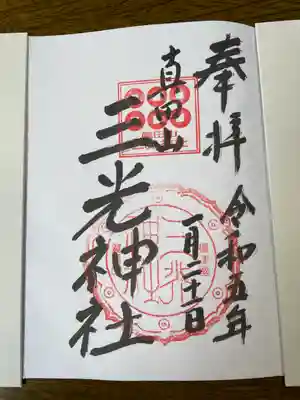 奉拝
令和五年
一月二十日
真田山
三光神社